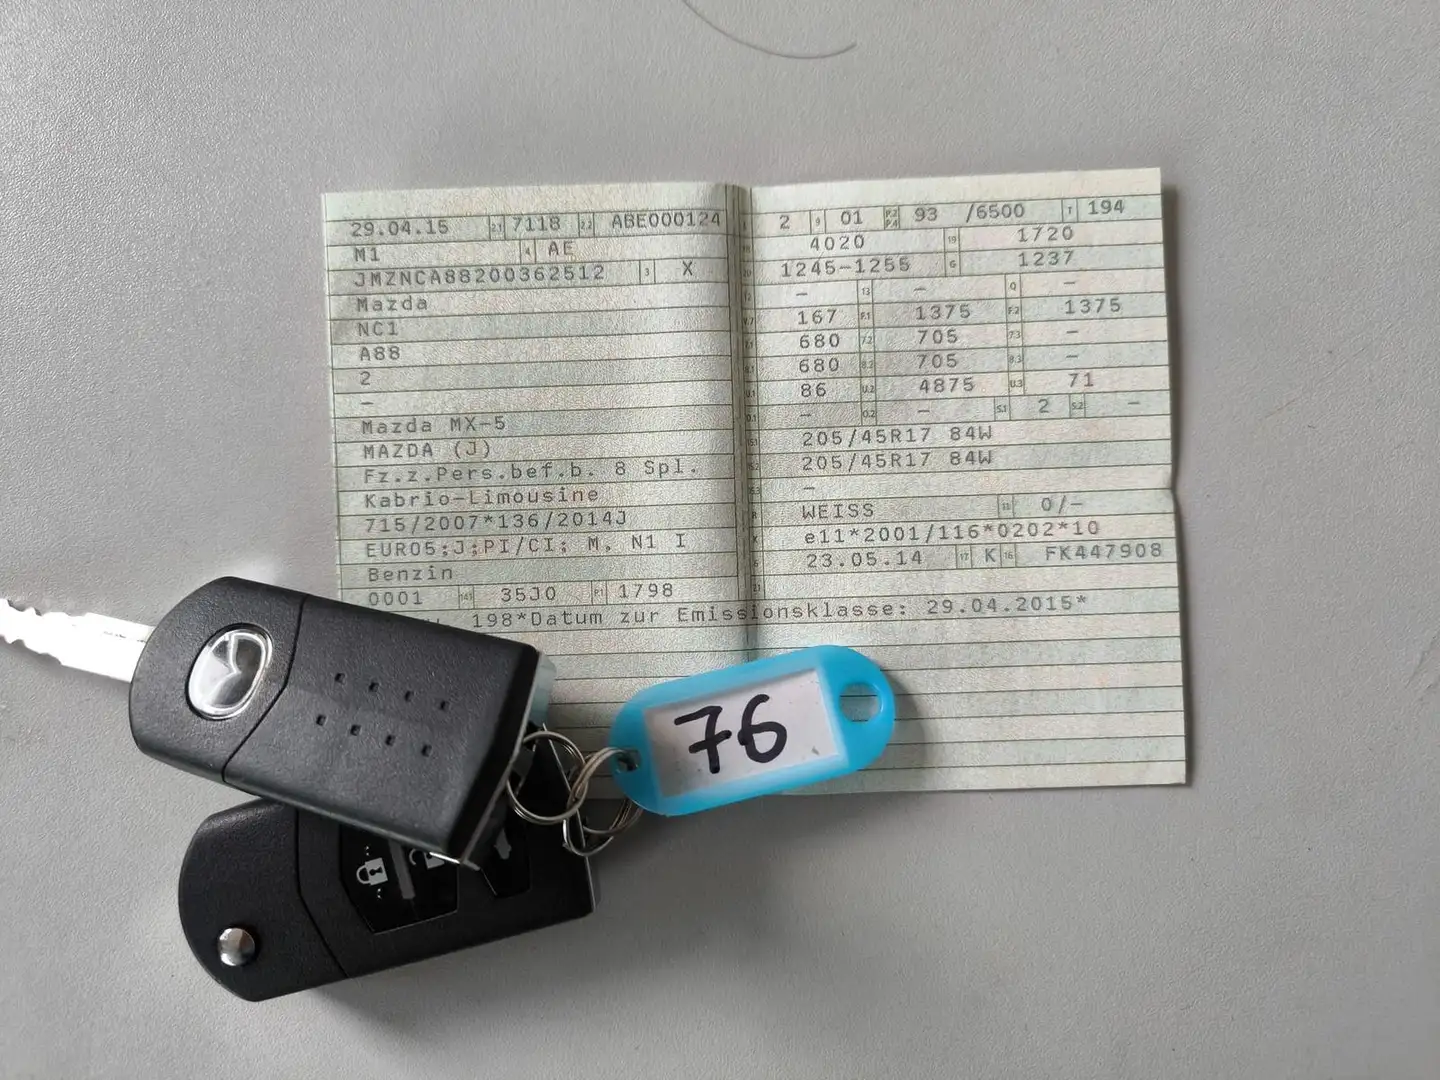 29.04.15 2.1 7118 2.2 ABE000124
M1 4 AE
JMZNCA88200362512 3 X
Mazda
NC1
A88
2
–
Mazda MX-5
MAZDA (J)
Fz.z.Pers.bef.b. 8 Spl.
Kabrio-Limousine
715/2007*136/2014J
EURO5;J;PI/CI; M, N1 I
Benzin
0001 14.1 35J0 P.1 1798
2 9 01 P.2 P.4 93 /6500 T 194
4020 19 1720
1245-1255 G 1237
– 13 – Q –
V.7 167 F.1 1375 F.2 1375
7.1 680 7.2 705 7.3 –
8.1 680 8.2 705 8.3 –
U.1 86 U.2 4875 U.3 71
O.1 – O.2 – S.1 2 S.2 –
15.1 205/45R17 84W
15.2 205/45R17 84W
15.3 –
R WEISS 11 0/–
K e11*2001/116*0202*10
6 23.05.14 17 K 16 FK447908
21
198*Datum zur Emissionsklasse: 29.04.2015*
76